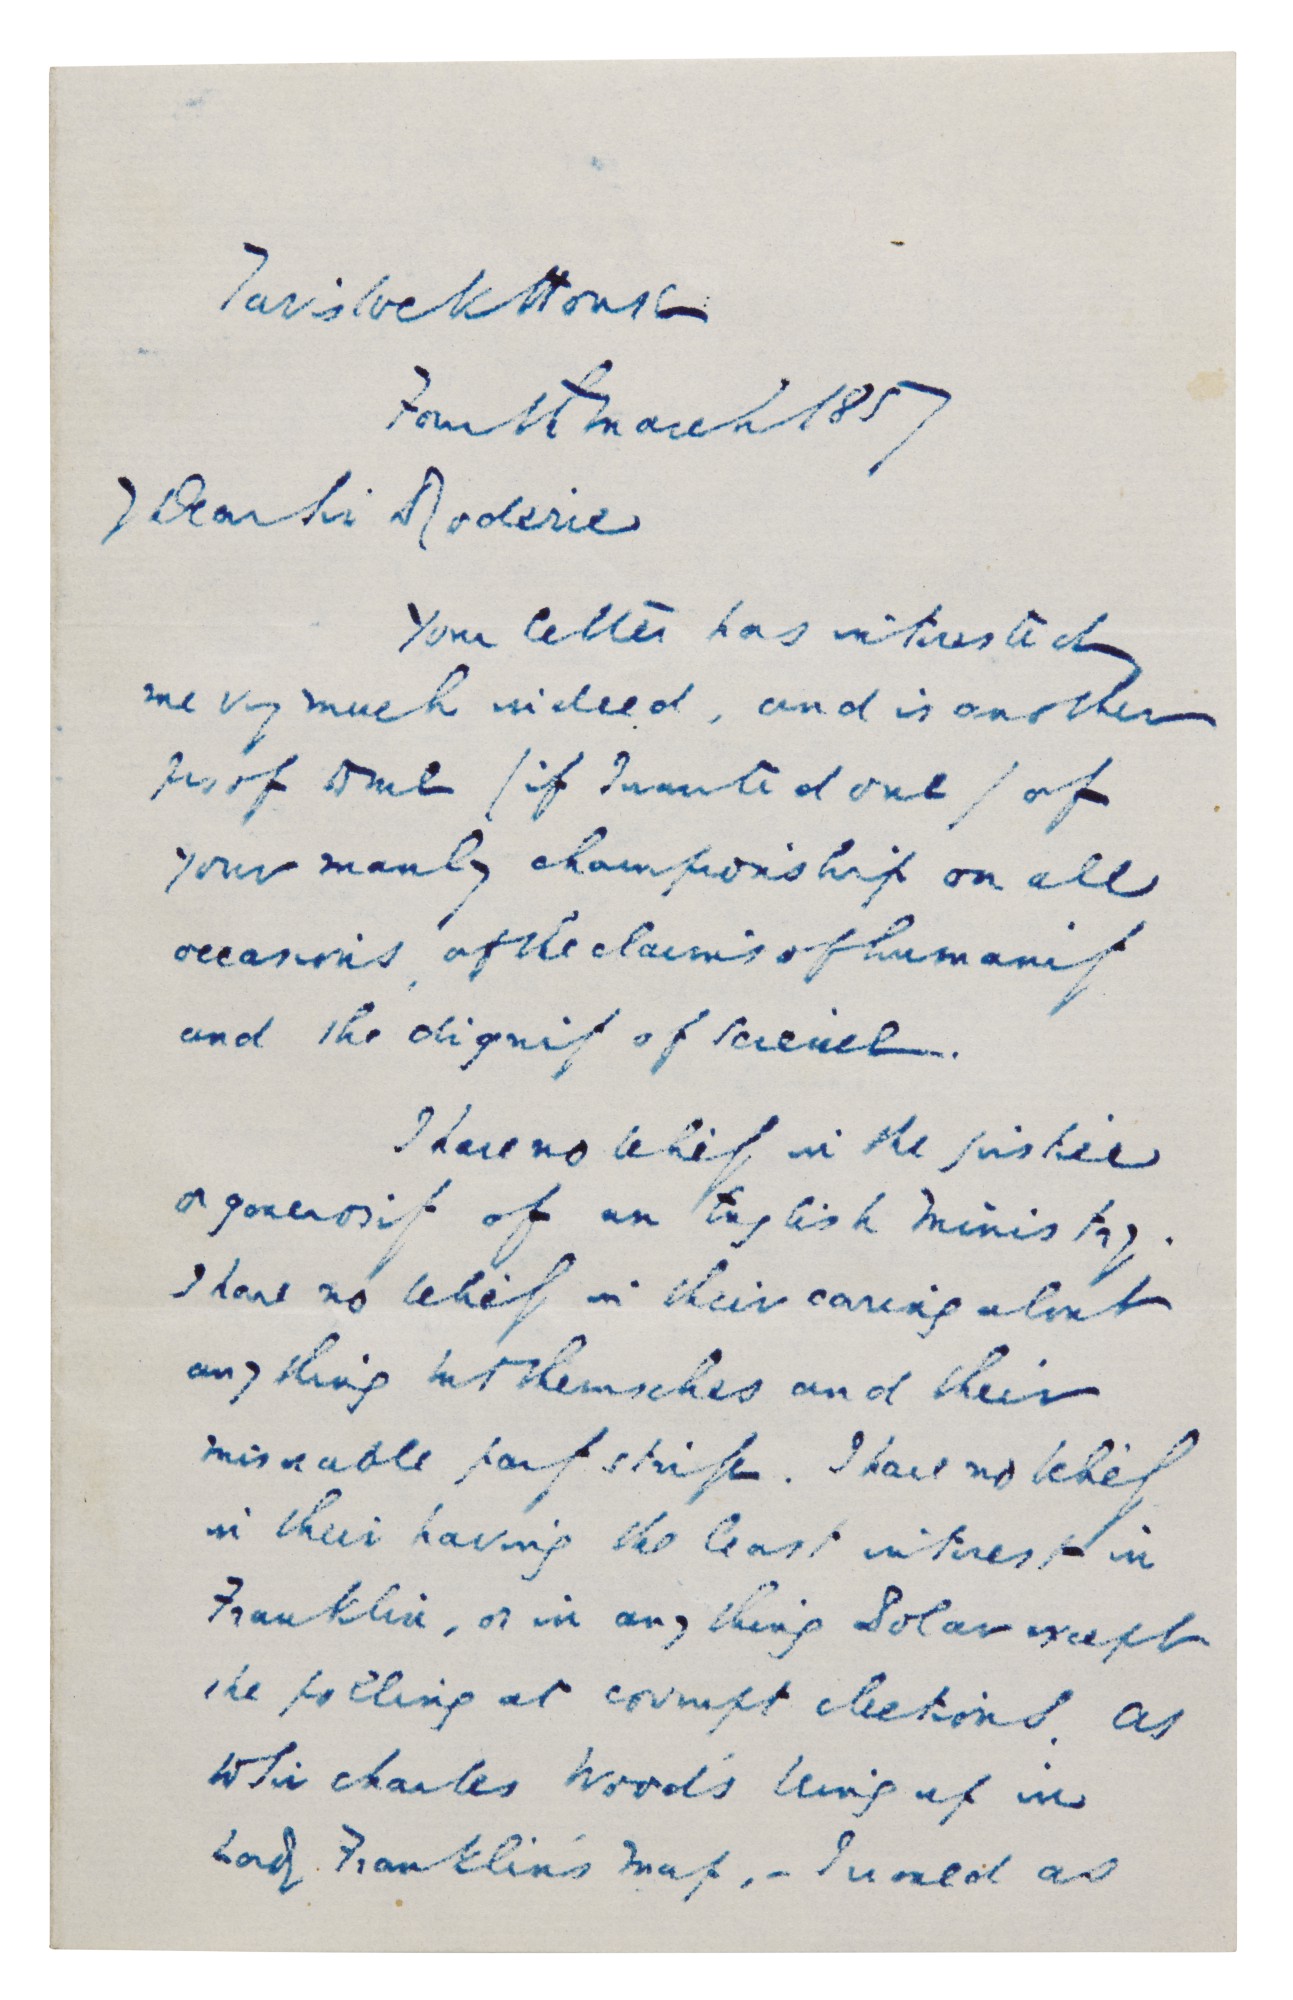 Tavistock House
Fourth March 1857
My Dear Sir Roderic
Your letter has interested
me very much indeed, and is another
proof to me (if I wanted one) of
your manly championship on all
occasions, of the claims of humanity
and the dignity of science.
I have no belief in the justice
or generosity of an English Ministry.
I have no belief in their caring about
anything but themselves and their
miserable party strife. I have no belief
in their having the least interest in
Franklin, or in any thing Polar except
the polling at corrupt elections. As
to Sir Charles Wood's being up in
Lady Franklin's map, - I would as